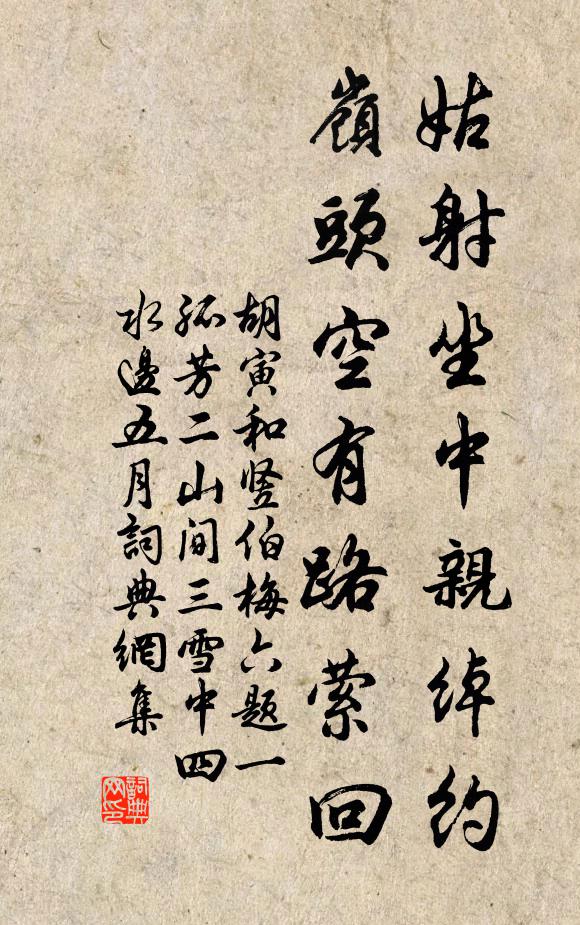 姑射坐中親綽約
嶺頭空有路縈回
胡寅和竖伯梅六题一
孤芳二山间三雪中四
水邊五月詞典網集
詞典网印